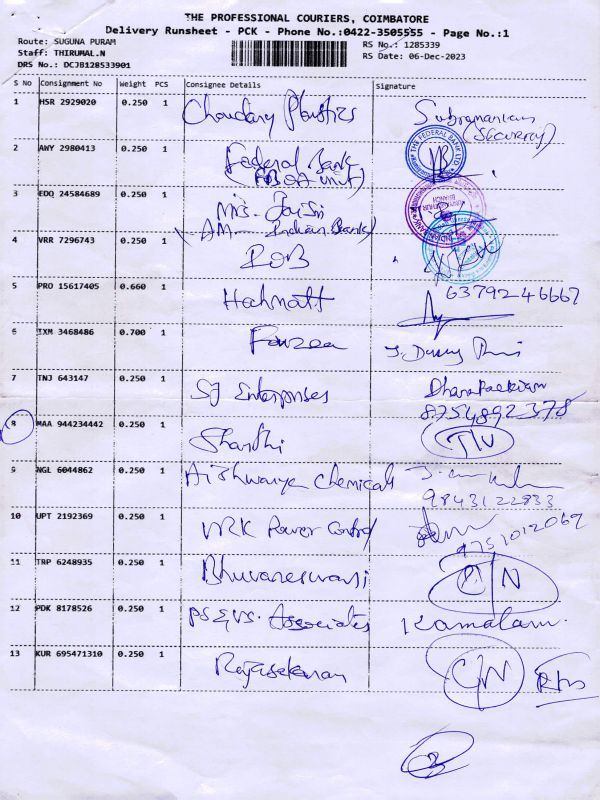 THE PROFESSIONAL COURIERS, COIMBATORE
Delivery Runsheet - PCK - Phone No.:0422-3505555 - Page No.:1
Route: SUGUNA PURAM
RS No.: 1285339
Staff: THIRUMAL.N
RS Date: 06-Dec-2023
DRS No.: DCJB128533901
S No Consignment No Weight PCS Consignee Details Signature
1 HSR 2929020 0.250 1 Choudary Plastics Subramanian
(Security)
2 AWY 2980413 0.250 1 Federal Bank
THE FEDERAL BANK LTD
3 EDQ 24584689 0.250 1 Mrs. Jaisri
AM- Indian Bank
4 VRR 7296743 0.250 1 IOB
5 PRO 15617405 0.660 1 Hachnatt 6379246667
6 TXM 3468486 0.700 1 Fouzea
7 TNJ 643147 0.250 1 SJ Enterprises
8754892378
8 MAA 944234442 0.250 1 Shanthi
9 NGL 6044862 0.250 1 Aishwarya Chemicals
9843122833
10 UPT 2192369 0.250 1 VRK Power Control
9751012069
11 TRP 6248935 0.250 1 Bhuvaneswari
12 PDK 8178526 0.250 1 PS & VS. Associates Kamalam.
13 KUR 695471310 0.250 1 Rajasekaran C/N